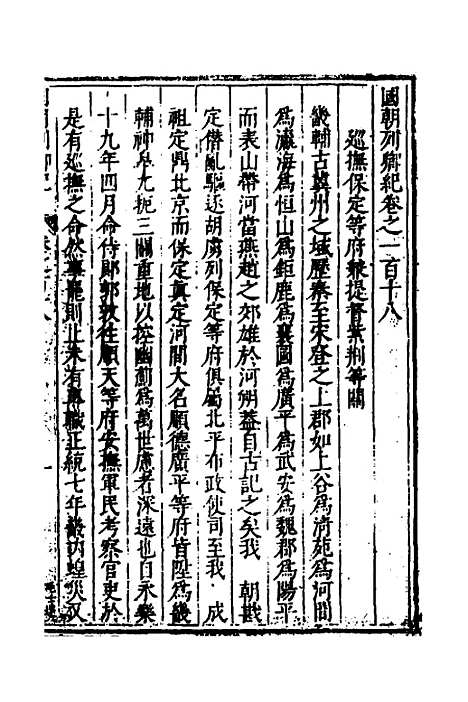 國朝列卿紀卷之一百十八
巡撫保定等府兼提督紫荆等關
畿輔古冀州之域歷秦至宋登之上郡如上谷爲淸苑爲河間
爲瀛海爲恒山爲鉅鹿爲襄國爲廣平爲武安爲魏郡爲陽平
而表山帶河當燕趙之郊雄於河朔葢自古記之矣我 朝戡
定僭亂驅逐胡虜列保定等府俱屬北平布政使司至我 成
祖定鼎北京而保定眞定河間大名順德廣平等府皆陞爲畿
輔神皋尤扼三關重地以控幽薊爲萬世慮者深遠也自永樂
十九年四月命侍郎郭敦往順天等府安撫軍民考察官吏於
是有巡撫之命然事罷則止未有專職正統七年畿內蝗災又